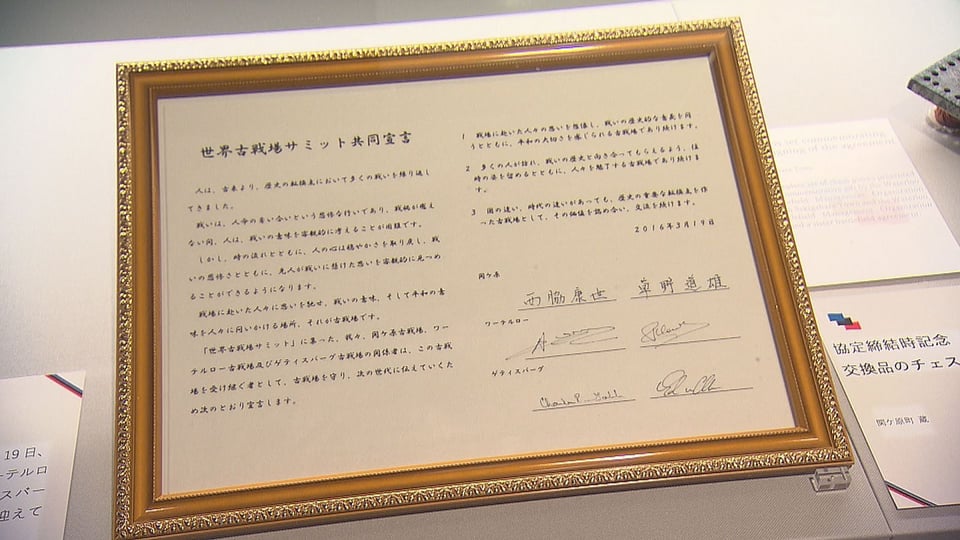 世界古戦場サミット共同宣言
人は、古来より、歴史の転換点において多くの戦いを繰り返し
てきました。
戦いは、人命の奪い合いという悲惨な行いであり、戦禍が癒え
ない間、人は、戦いの意味を客観的に考えることが困難です。
しかし、時の流れとともに、人の心は穏やかさを取り戻し、戦
いの悲惨さとともに、先人が戦いに懸けた思いを客観的に見つめ
ることができるようになります。
戦場に赴いた人々に思いを馳せ、戦いの意味、そして平和の意
味を人々に問いかける場所、それが古戦場です。
「世界古戦場サミット」に集った、我々、関ケ原古戦場、ワー
テルロー古戦場及びゲティスバーグ古戦場の関係者は、この古戦
場を受け継ぐ者として、古戦場を守り、次の世代に伝えていくた
め次のとおり宣言します。
1 戦場に赴いた人々の思いを想像し、戦いの歴史的な意義を問
うとともに、平和の大切さを感じられる古戦場であり続けます。
2 多くの人が訪れ、戦いの歴史と向き合ってもらえるよう、往
時の姿を留めるとともに、人々を魅了する古戦場であり続けま
す。
3 国の違い、時代の違いがあっても、歴史の重要な転換点を作
った古戦場として、その価値を認め合い、交流を続けます。
2016年3月19日
関ケ原
西脇康世 草野道雄
ワーテルロー
ゲティスバーグ
19日、
ーテルロ
スバー
迎えて
協定締結時記念
交換品のチェス
関ケ原町 蔵